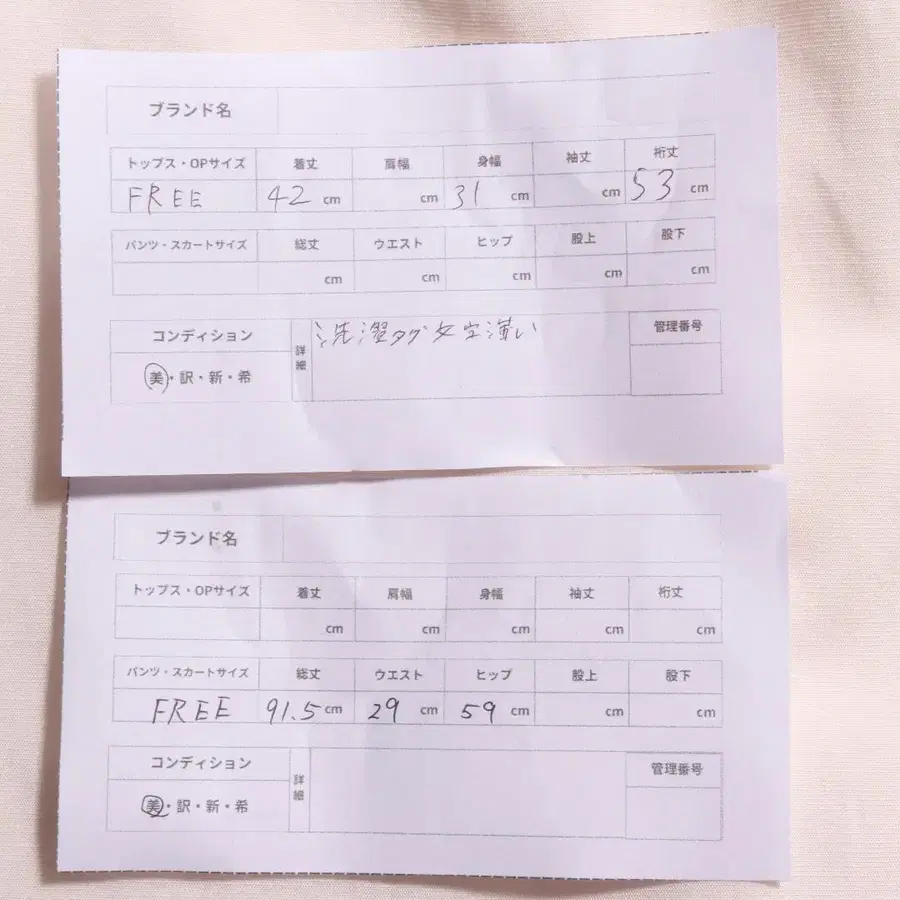 ブランド名
トップス・OPサイズ 着丈 肩幅 身幅 袖丈 裄丈
FREE 42 cm cm 31 cm cm 53 cm
パンツ・スカートサイズ 総丈 ウエスト ヒップ 股上 股下
cm cm cm cm cm
コンディション 詳細 洗濯タグ文字薄い 管理番号
美・訳・新・希
ブランド名
トップス・OPサイズ 着丈 肩幅 身幅 袖丈 裄丈
cm cm cm cm cm
パンツ・スカートサイズ 総丈 ウエスト ヒップ 股上 股下
FREE 91.5 cm 29 cm 59 cm cm cm
コンディション 詳細 管理番号
美・訳・新・希